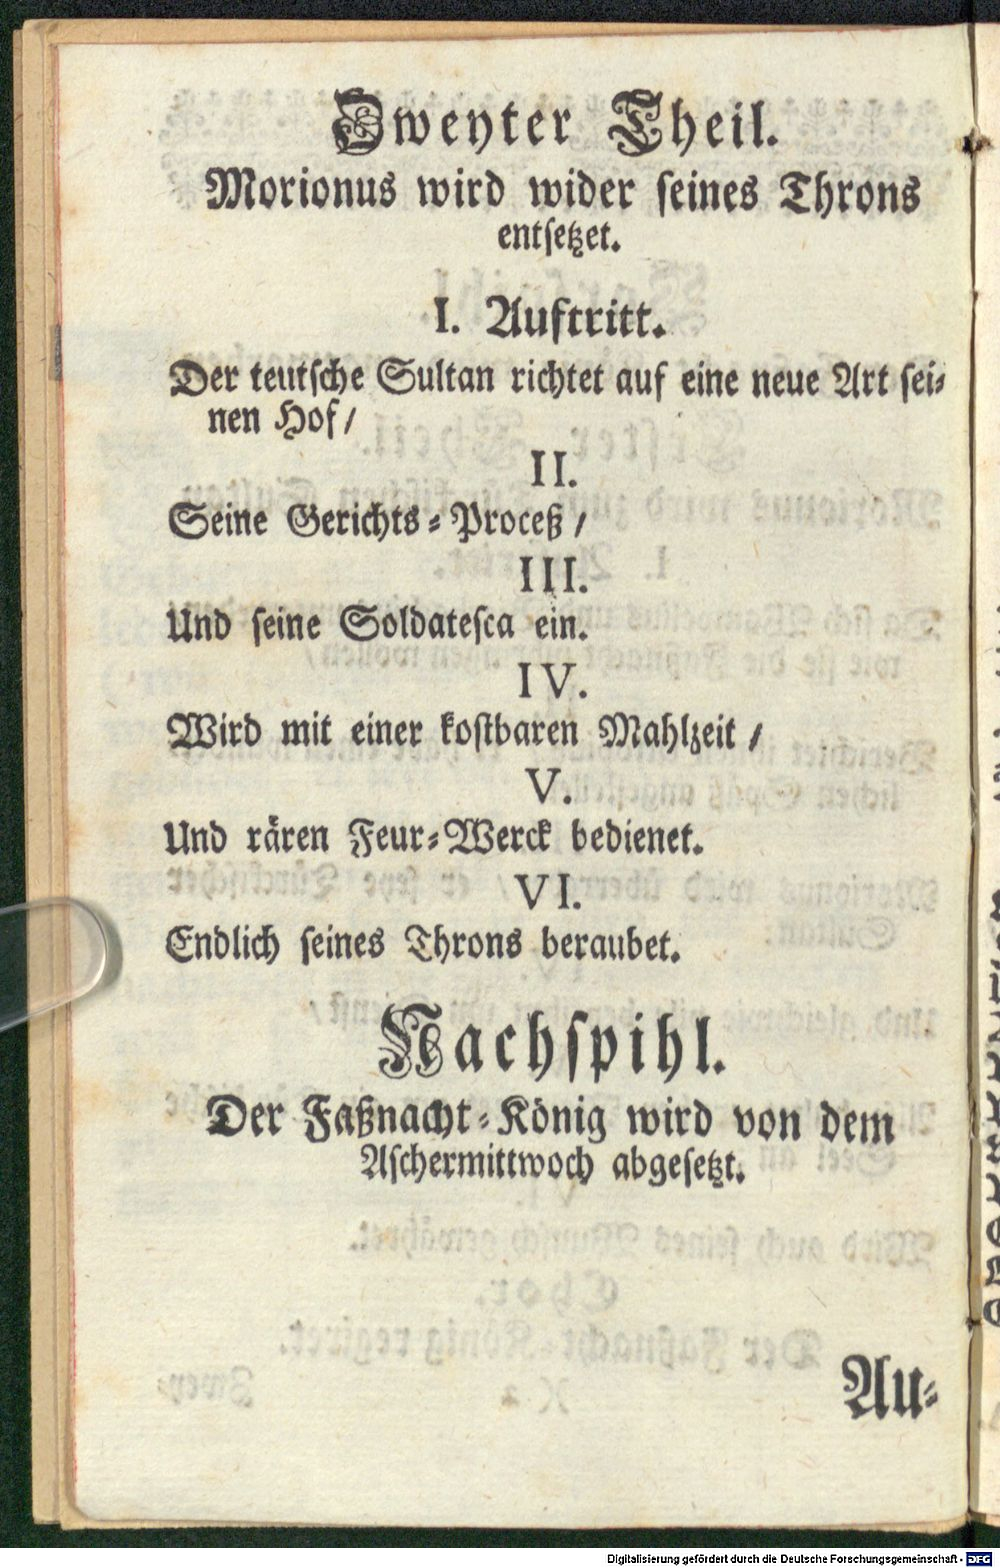 Zweyter Theil.
Morionus wird wider seines Throns
entsetzet.
I. Auftritt.
Der teutsche Sultan richtet auf eine neue Art sei-
nen Hof/
II.
Seine Gerichts-Proceß/
III.
Und seine Soldatesca ein.
IV.
Wird mit einer kostbaren Mahlzeit/
V.
Und rären Feur-Werck bedienet.
VI.
Endlich seines Throns beraubet.
Nachspihl.
Der Faßnacht-König wird von dem
Aschermittwoch abgesetzt.
Au-
Digitalisierung gefördert durch die Deutsche Forschungsgemeinschaft - DFG